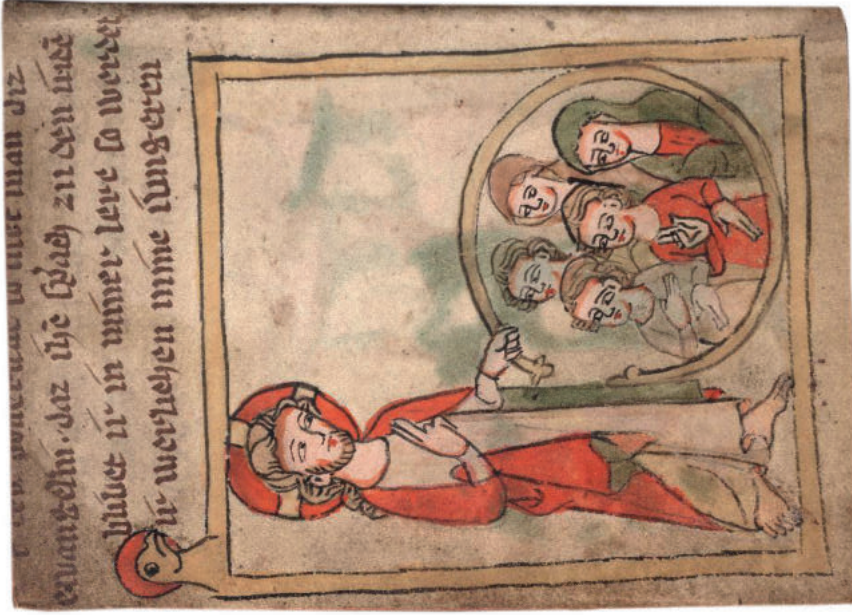 man diz
ewangelin · daz ihc̄ sprach zu den iudē
blibet ir in miner lere so werdet
ir werlichen mine iungeren